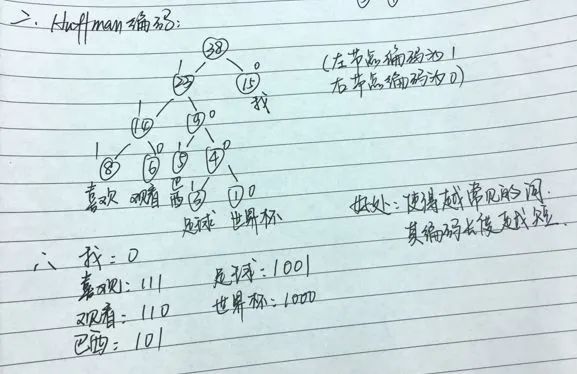 二、Huffman编码:
38
1 0
23 15
我
(左节点编码为1
右节点编码为0)
1 0
14 9
1 0 1 0
8 6 5 4
喜欢 观看 巴西
1 0
3 1
足球 世界杯
好处:使得越常见的词,
其编码长度越短.
∴ 我:0
喜欢:111
观看:110
巴西:101
足球:1001
世界杯:1000